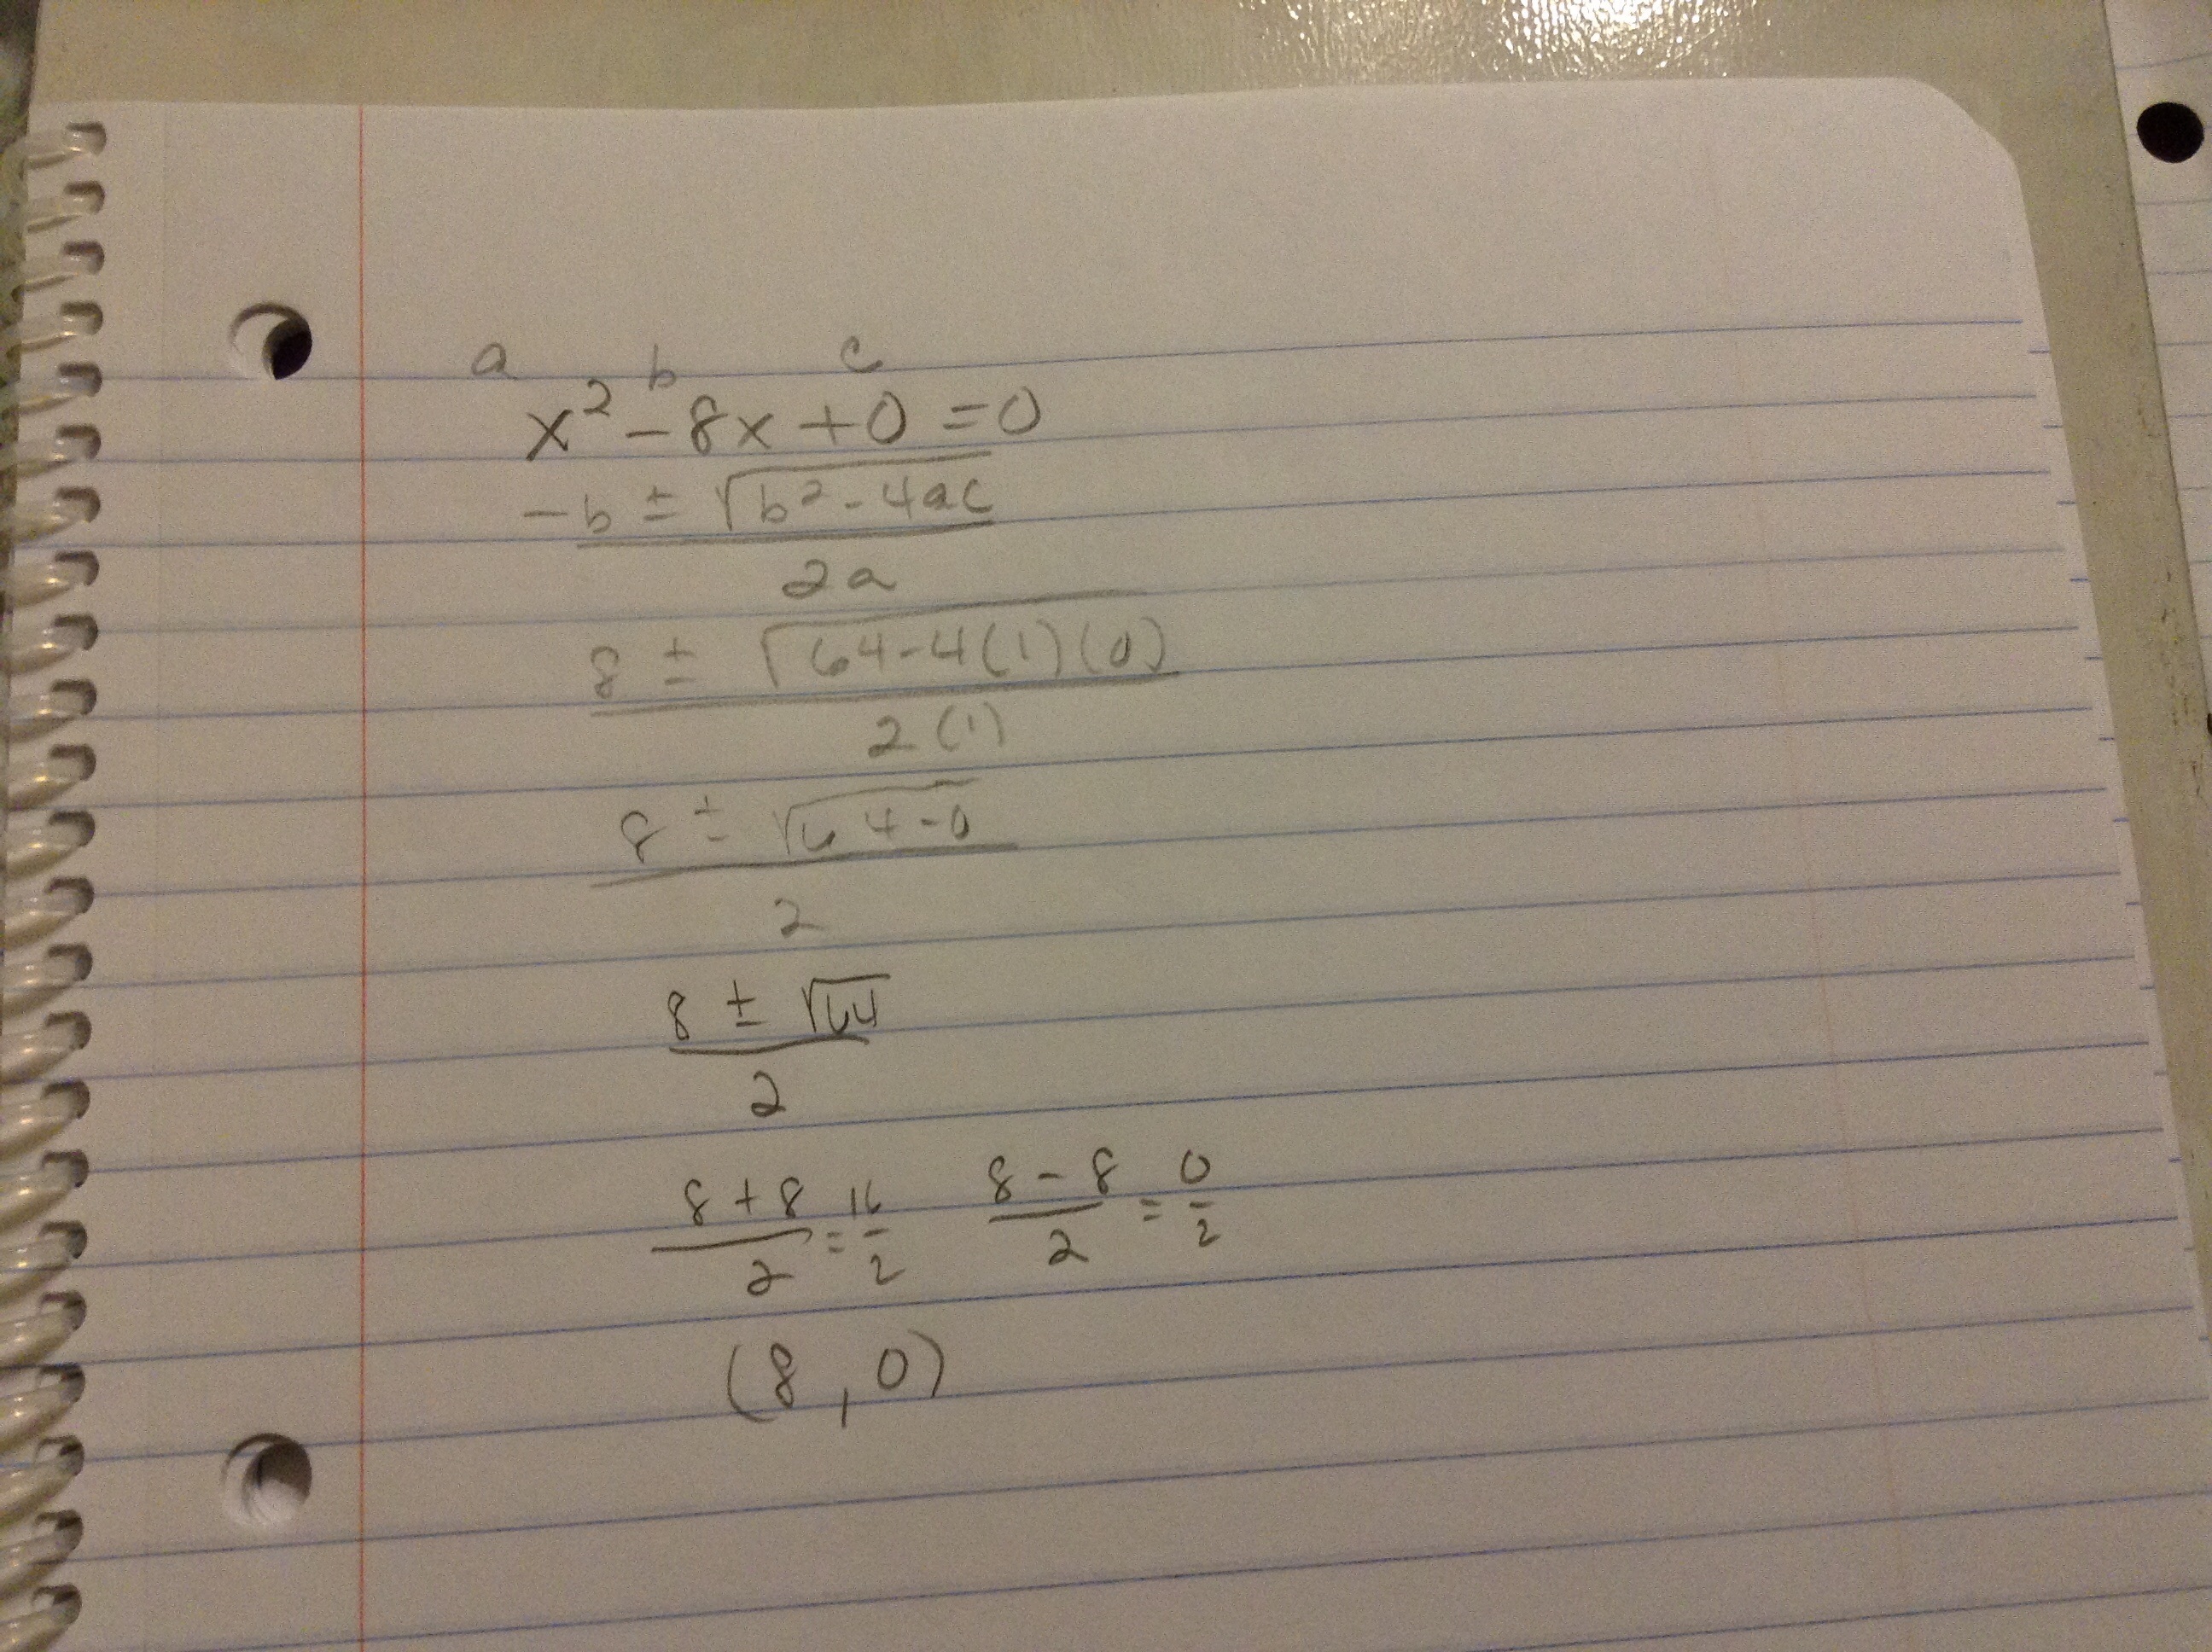 a b c
x² - 8x + 0 = 0
-b ± √b² - 4ac
2a
8 ± √64 - 4(1)(0)
2(1)
8 ± √64 - 0
2
8 ± √64
2
8 + 8 = 16 8 - 8 = 0
2 2 2 2
(8, 0)